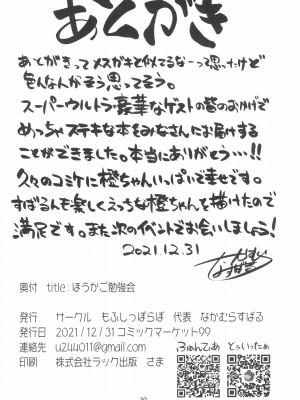 あとがき
あとがきってメスガキと似てるなーって思ったけど
色んなんがそう思ってそう。
スーパーウルトラ豪華なゲストの皆のおかげで
めっちゃステキな本をみなさんにお届けする
ことができました。本当にありがとう…!!
久々のコミケに橙ちゃんいっぱいで幸せです。
すばるんも楽しくえっちな橙ちゃんを描けたので
満足です。また次のイベントでお会いしましょう!
2021.12.31
なかむら
すばる
奥付 title:ほうかご勉強会
発行 サークル もふしっぽらぼ 代表 なかむらすばる
発行日 2021/12/31コミックマーケット99
連絡先 u244011@gmail.com
印刷 株式会社ラック出版 さま
ふぁんてぃあ とぅいったぁ
30